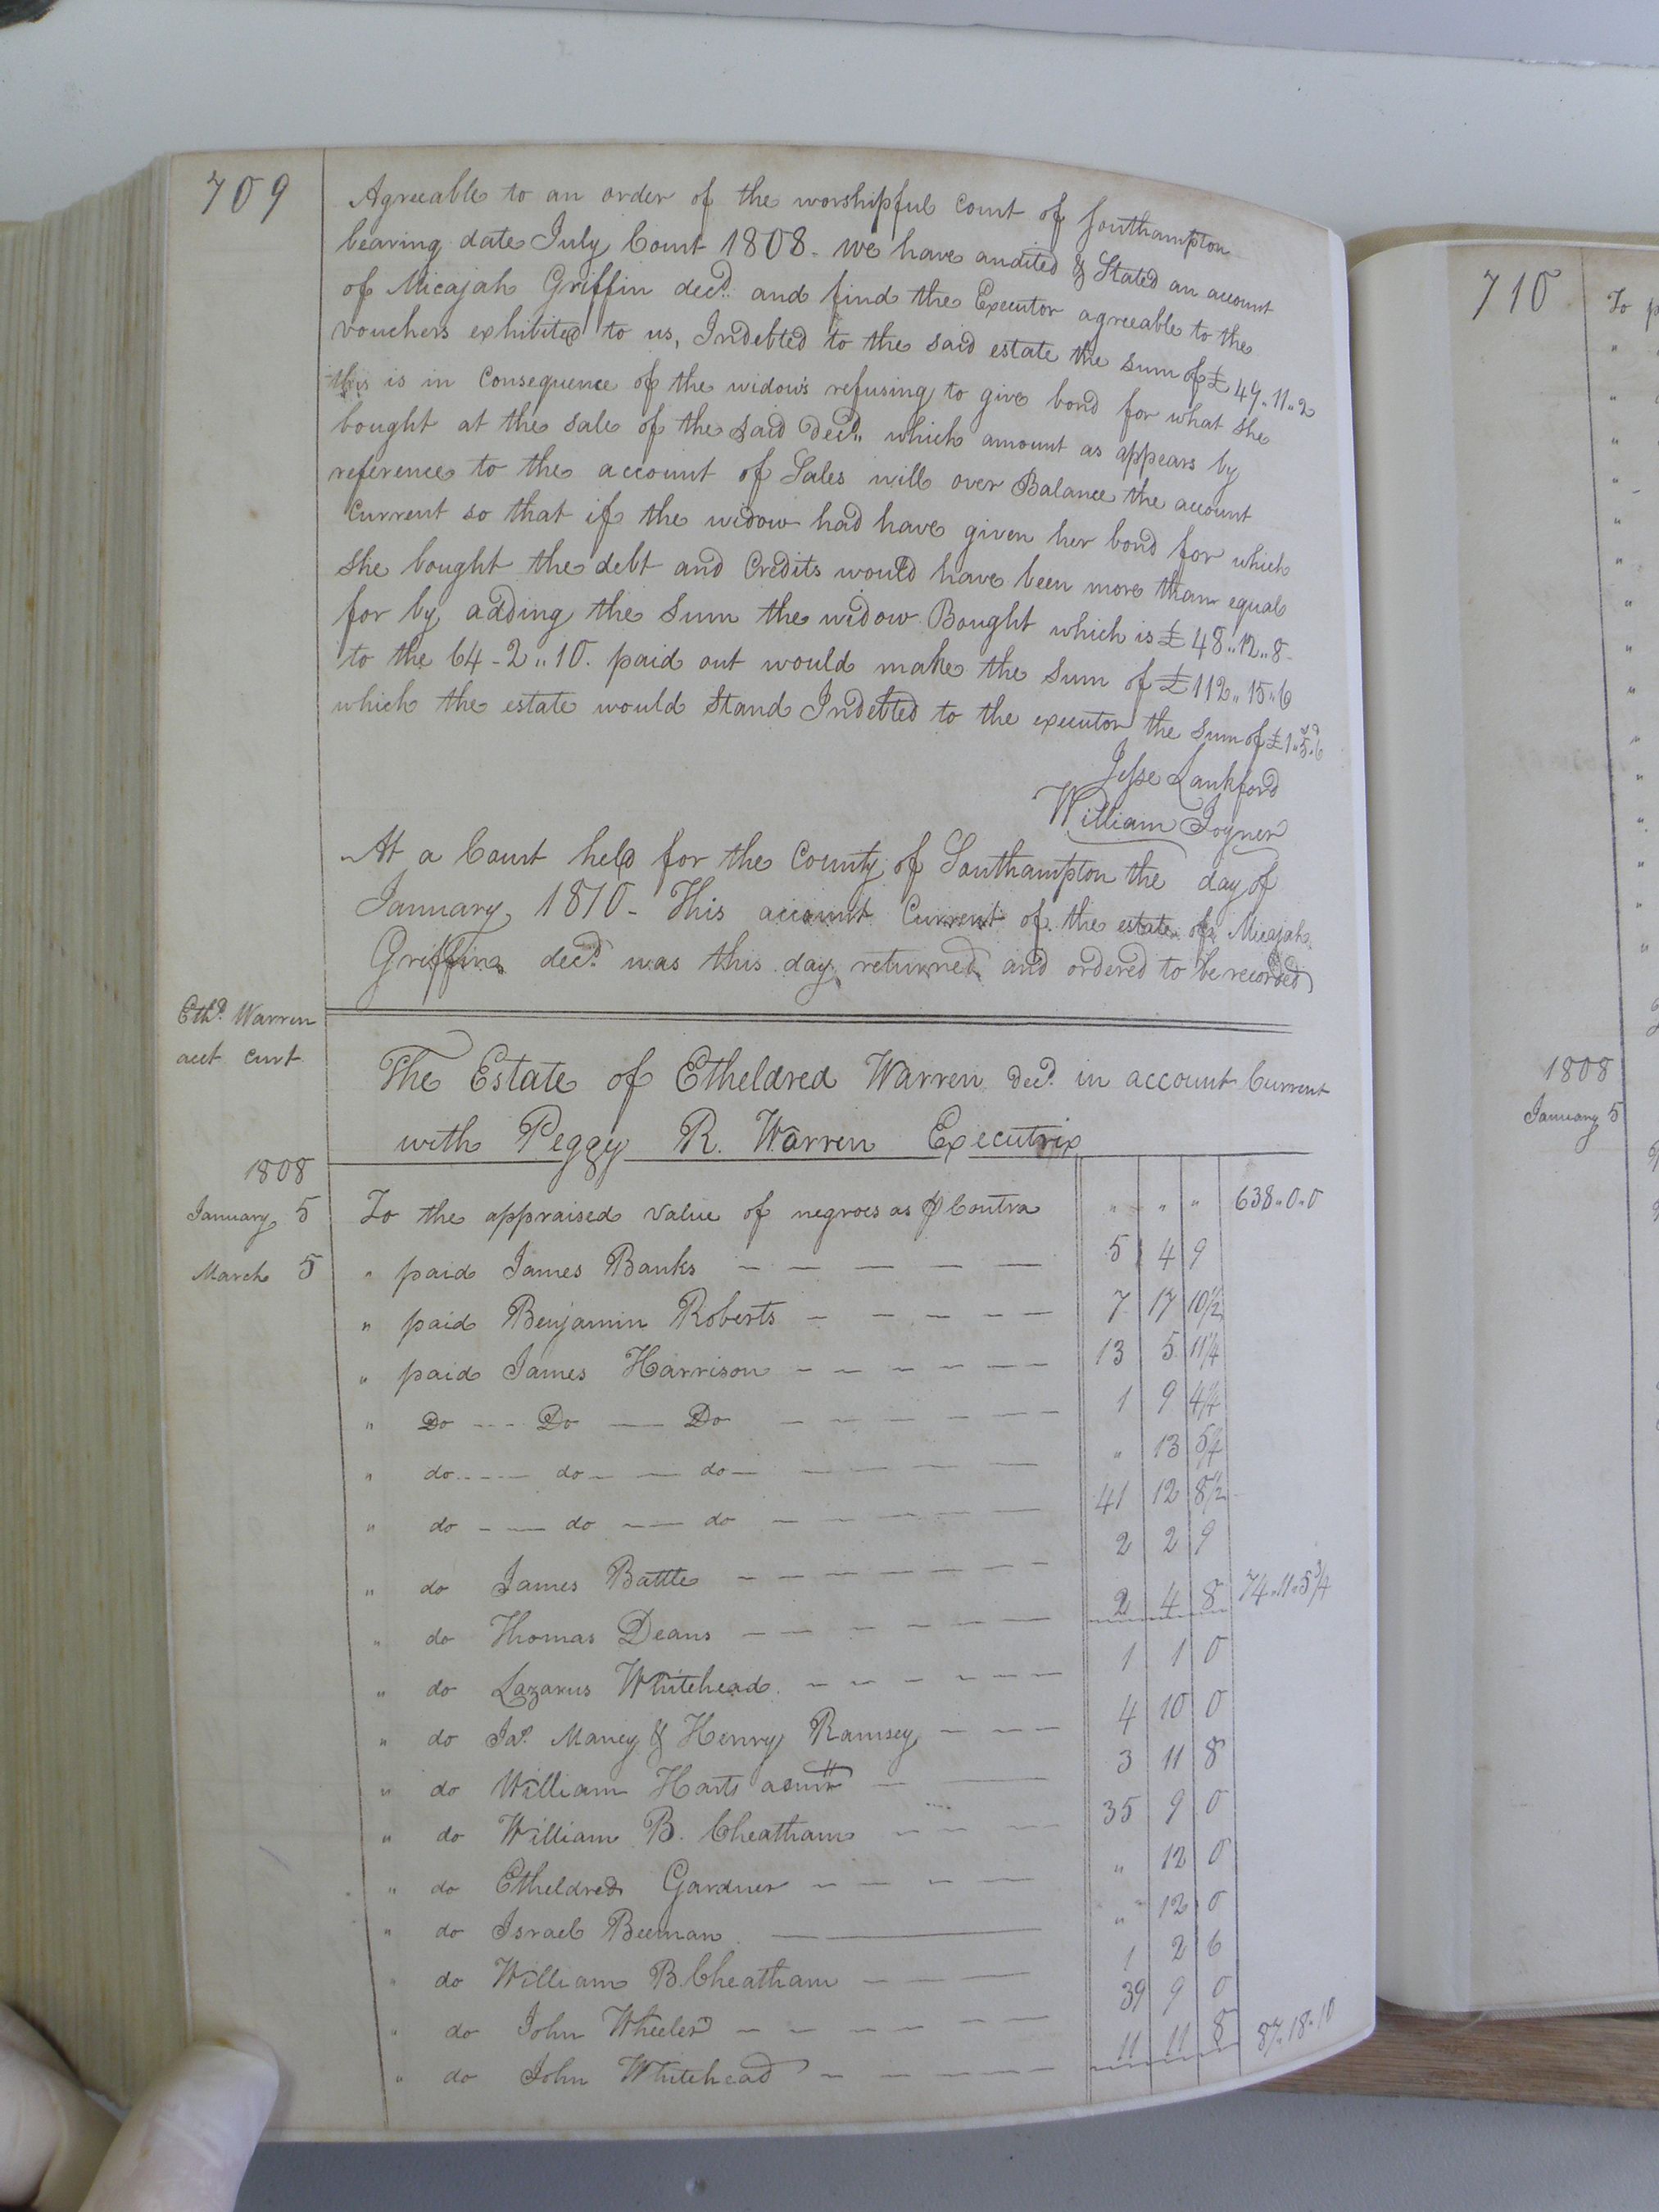 709
Agreeable to an order of the worshipful Court of Southampton
bearing date July Court 1808 - we have audited & Stated an account
of Micajah Griffin decd. and find the Executor agreeable to the
vouchers exhibited to us, Indebted to the said estate the sum of £ 47 .. 11 .. 2
this is in Consequence of the widows refusing to give bond for what she
bought at the sale of the said Decd.. which amount as appears by
reference to the account of Sales will over Balance the account
Current so that if the widow had have given her bond for which
she bought the debt and Credits would have been more than equal
for by adding the sum the widow Bought which is £ 48 .. 12 .. 8 -
to the 64 - 2 .. 10. paid out would make the sum of £ 112 .. 15 .. 6
which the estate would Stand Indebted to the executor the sum of £ 1 .. 5 .. 6
Jesse Lankford
William Joyner
At a Court held for the County of Southampton the day of
January 1810 - This account Current of the estate of Micajah
Griffin decd. was this day returned and ordered to be recorded
Ethd. Warren
acct Curt
The Estate of Etheldred Warren Decd. in account Current
with Peggy R. Warren Executrix
1808
January 5 To the appraised Value of negroes as ⅌ Contra " " " 638 .. 0 .. 0
March 5 " paid James Banks 5 4 9
" paid Benjamin Roberts 7 17 10½
" paid James Harrison 13 5 11¼
" Do Do Do 1 9 4¼
" do do do " 13 5¼
" do do do 41 12 8½
" do James Battle 2 2 9
" do Thomas Deans 2 4 8 74 .. 11 .. 5¾
" do Lazarus Whitehead 1 1 0
" do Jas. Maney & Henry Ramsey 4 10 0
" do William Harts 3 11 8
" do William B. Cheatham 35 9 0
" do Etheldred Gardner " 12 0
" do Israel Beeman " 12 0
" do William B Cheatham 1 2 6
" do John Wheeler 39 9 0
" do John Whitehead 11 11 8 87 .. 18 .. 10
710
To p
1808
January 5